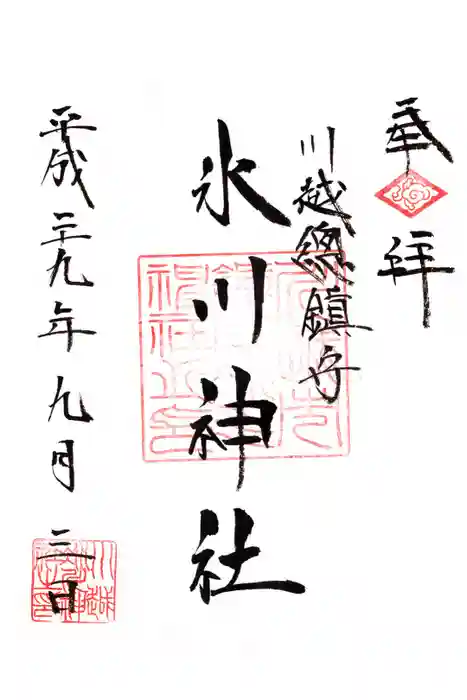 奉拝
川越總鎮守
氷川神社
平成二十九年九月二日